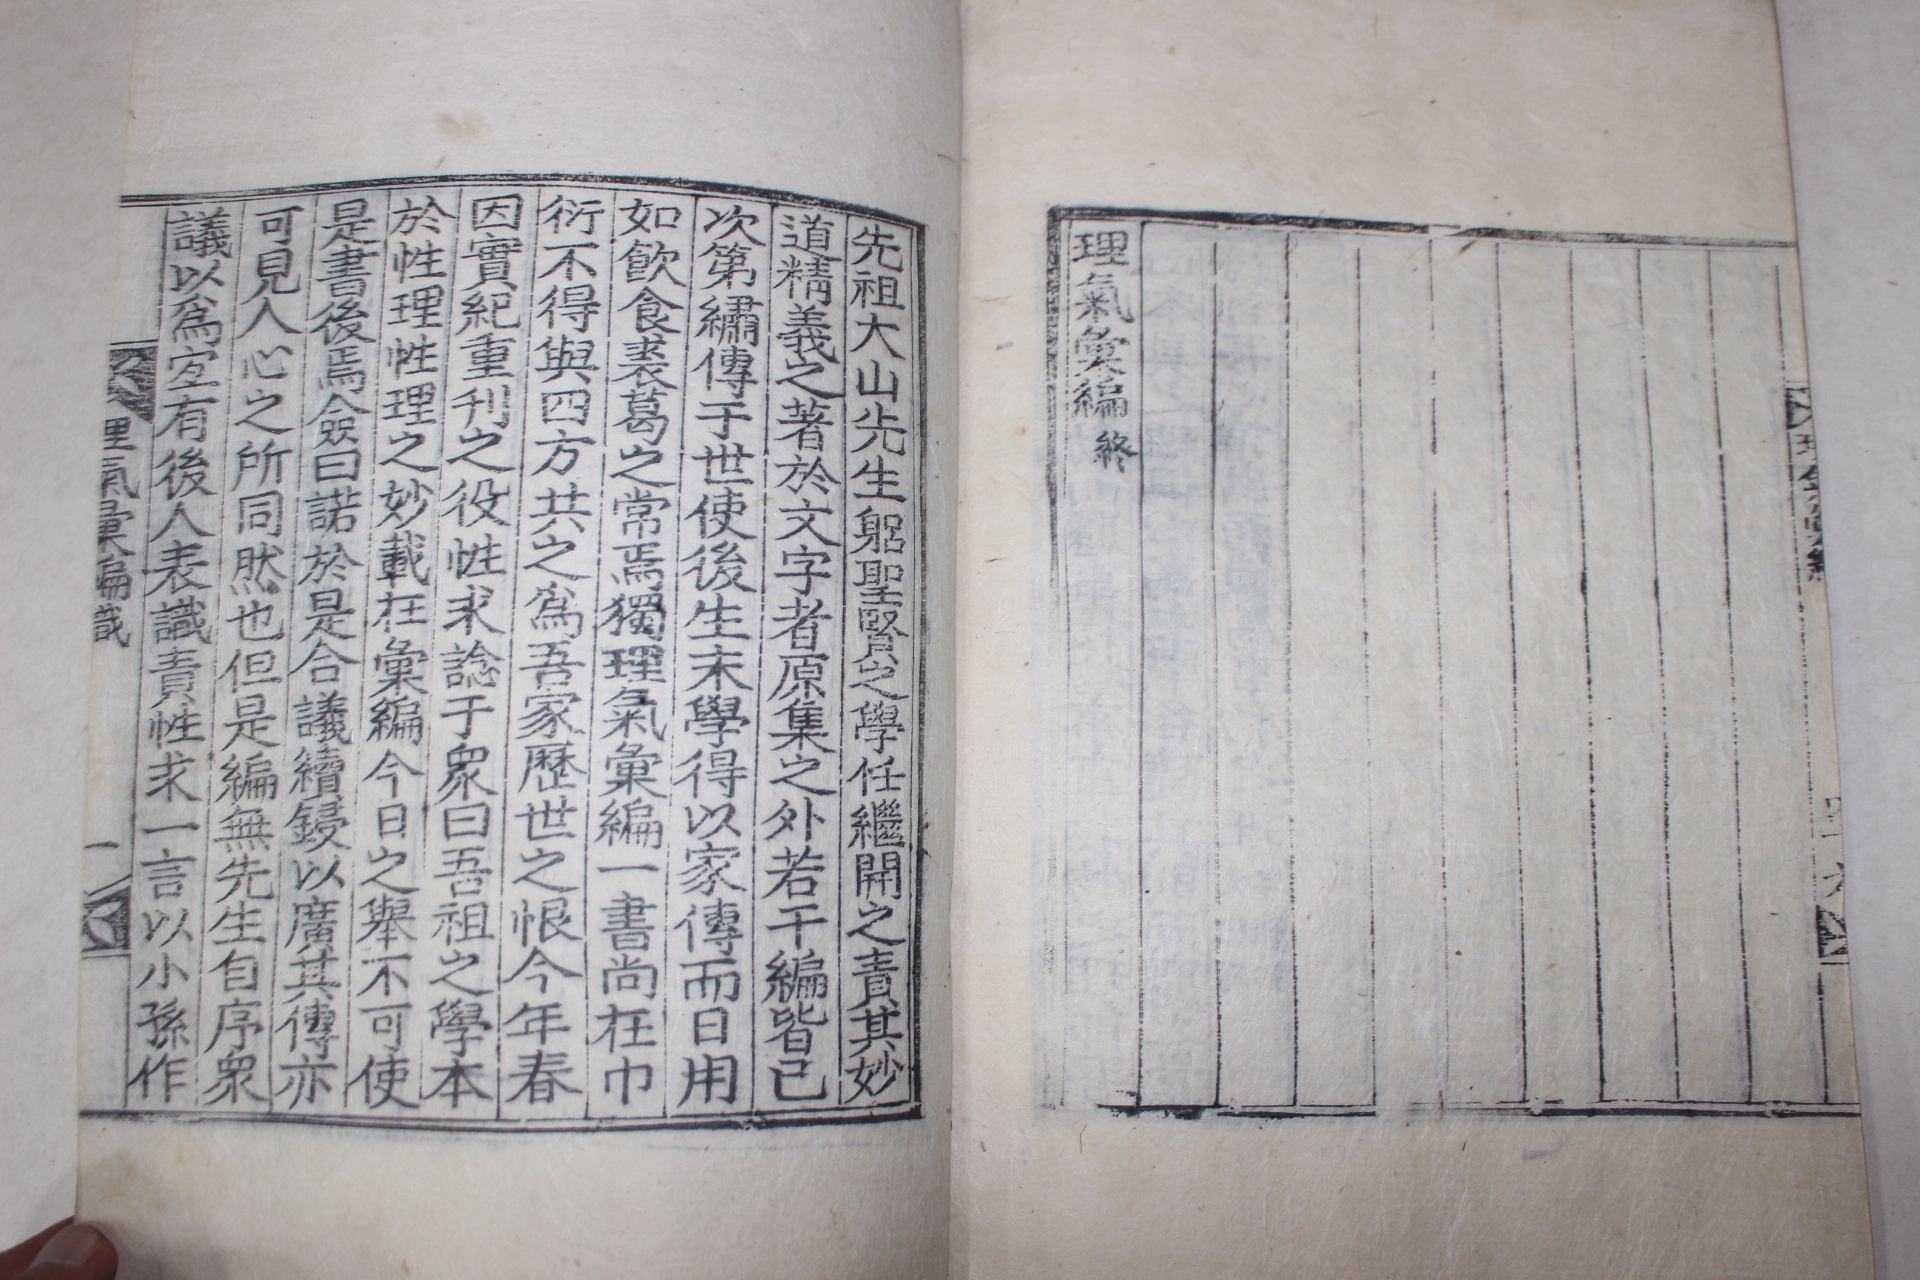 理氣彙編 終
先祖大山先生躬聖賢之學任繼開之責其妙
道精義之著於文字者原集之外若干編皆已
次第繡傳于世使後生末學得以家傳而日用
如飮食裘葛之常焉獨理氣彙編一書尚在巾
衍不得與四方共之爲吾家歷世之恨今年春
因實紀重刊之役性求諗于衆曰吾祖之學本
於性理性理之妙載在彙編今日之擧不可使
是書後焉僉曰諾於是合議續鋟以廣其傳亦
可見人心之所同然也但是編無先生自序衆
議以爲宜有後人表識責性求一言以小孫作
理氣彙編識
一